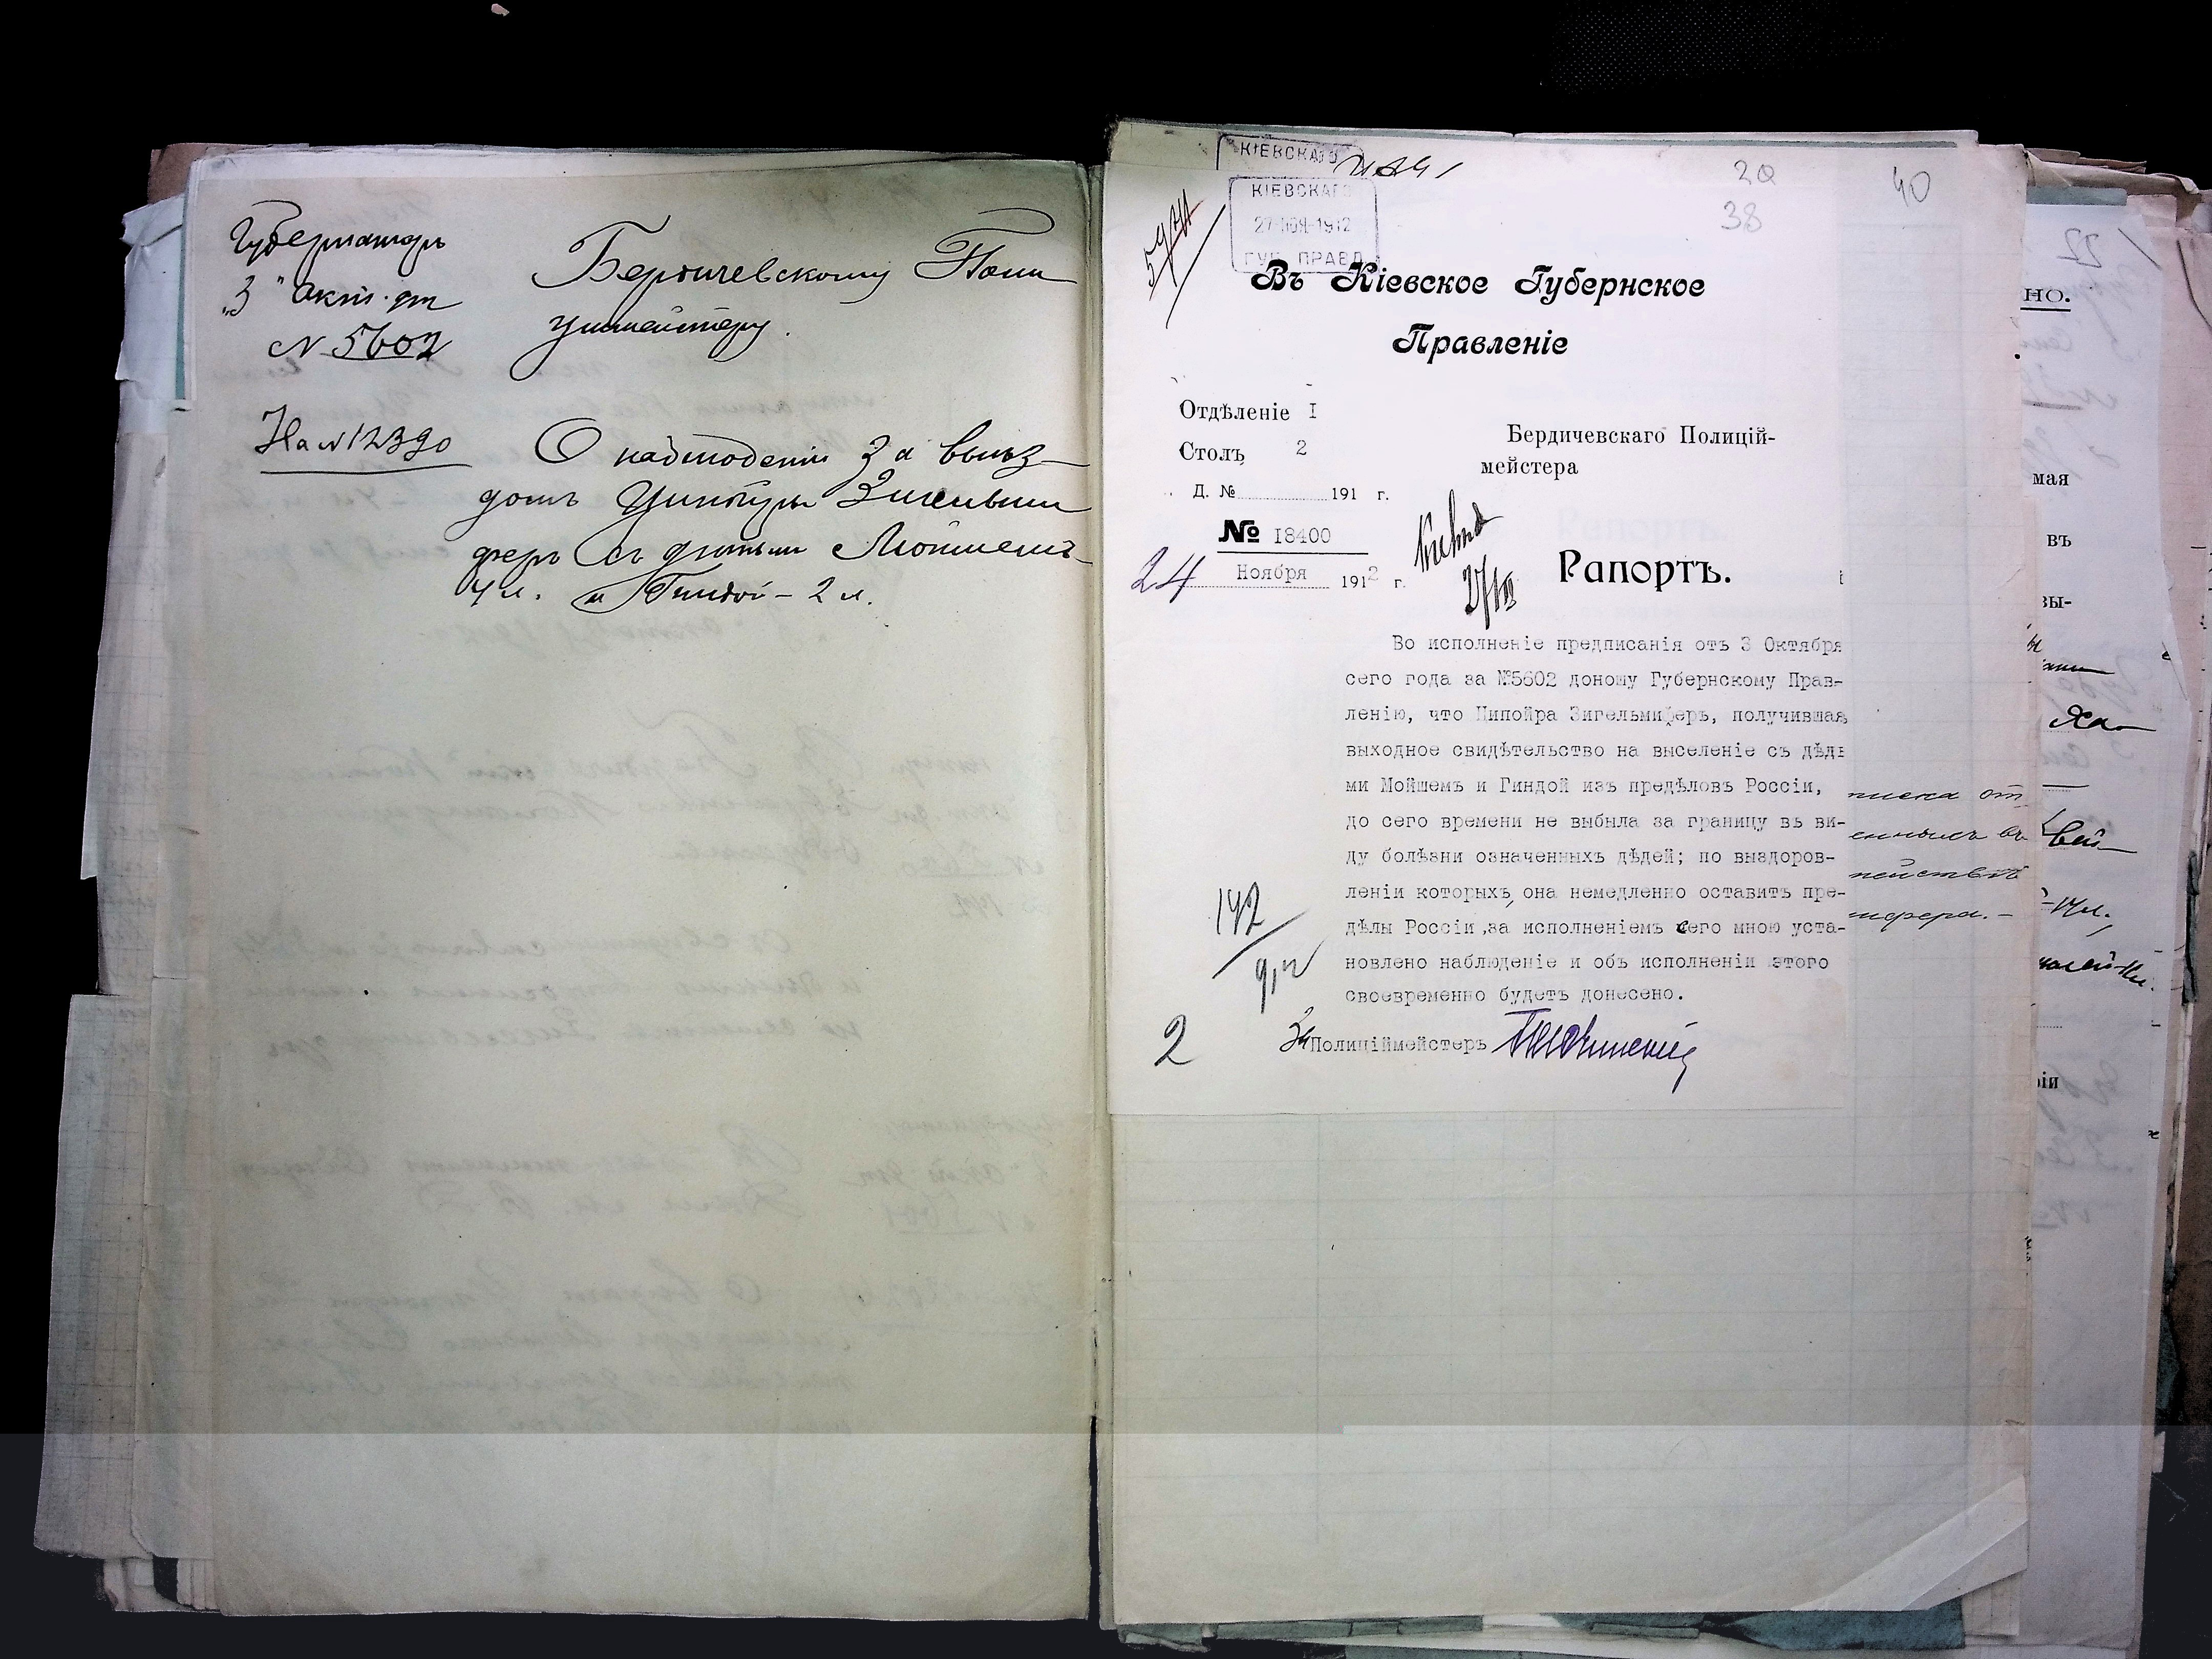 Губернаторъ
"3" Окт. дня
N 5602
На N 12390
Бердичевскому Поли
цiймейстеру.
О наблюденiи за выѣз-
домъ Ципойры Зигельми
феръ съ дѣтьми Мойшемъ-
4 л. и Гиндой - 2 л.
КІЕВСКАГО
КІЕВСКАГО
27 НОЯ 1912
ГУБ. ПРАВЛ
20
38
40
Въ Кіевское Губернское
Правленіе
Отдѣленіе I
Столъ 2
Д. № 191 г.
№ 18400
24 Ноября 1912 г.
Бердичевскаго Полицій-
мейстера
Рапортъ.
Во исполненіе предписанія отъ 3 Октября
сего года за №5602 доношу Губернскому Прав-
ленію, что Ципойра Зигельмиферъ, получившая
выходное свидѣтельство на выселеніе съ дѣдь
ми Мойшемъ и Гиндой изъ предѣловъ Россіи,
до сего времени не выбыла за границу въ ви-
ду болѣзни означенныхъ дѣдей; по выздоров-
леніи которыхъ, она немедленно оставитъ пре-
дѣлы Россіи, за исполненіемъ сего мною уста-
новлено наблюденіе и объ исполненіи этого
своевременно будетъ донесено.
За Полиціймейстеръ
142
2
но.
мая
въ
вы-
Ха-
вей-
ріи